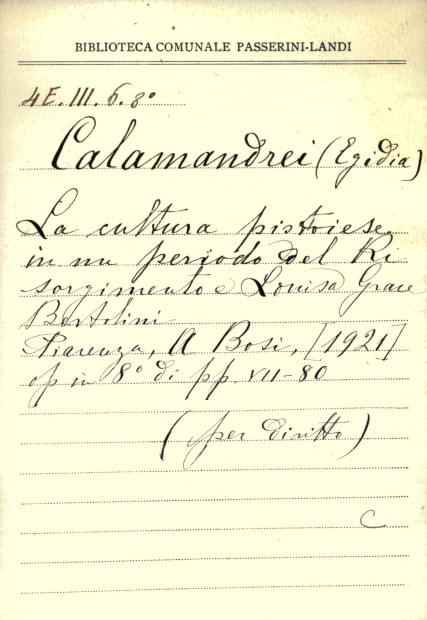 BIBLIOTECA COMUNALE PASSERINI-LANDI
4E. III. 6. 8°
Calamandrei (Egidia)
La cultura pistoiese
in un periodo del Ri
sorgimento e Louisa Grace
Bartolini
Piacenza, A Bosi, [1921]
op in 8° di pp. VII-80
(per diritto)
C